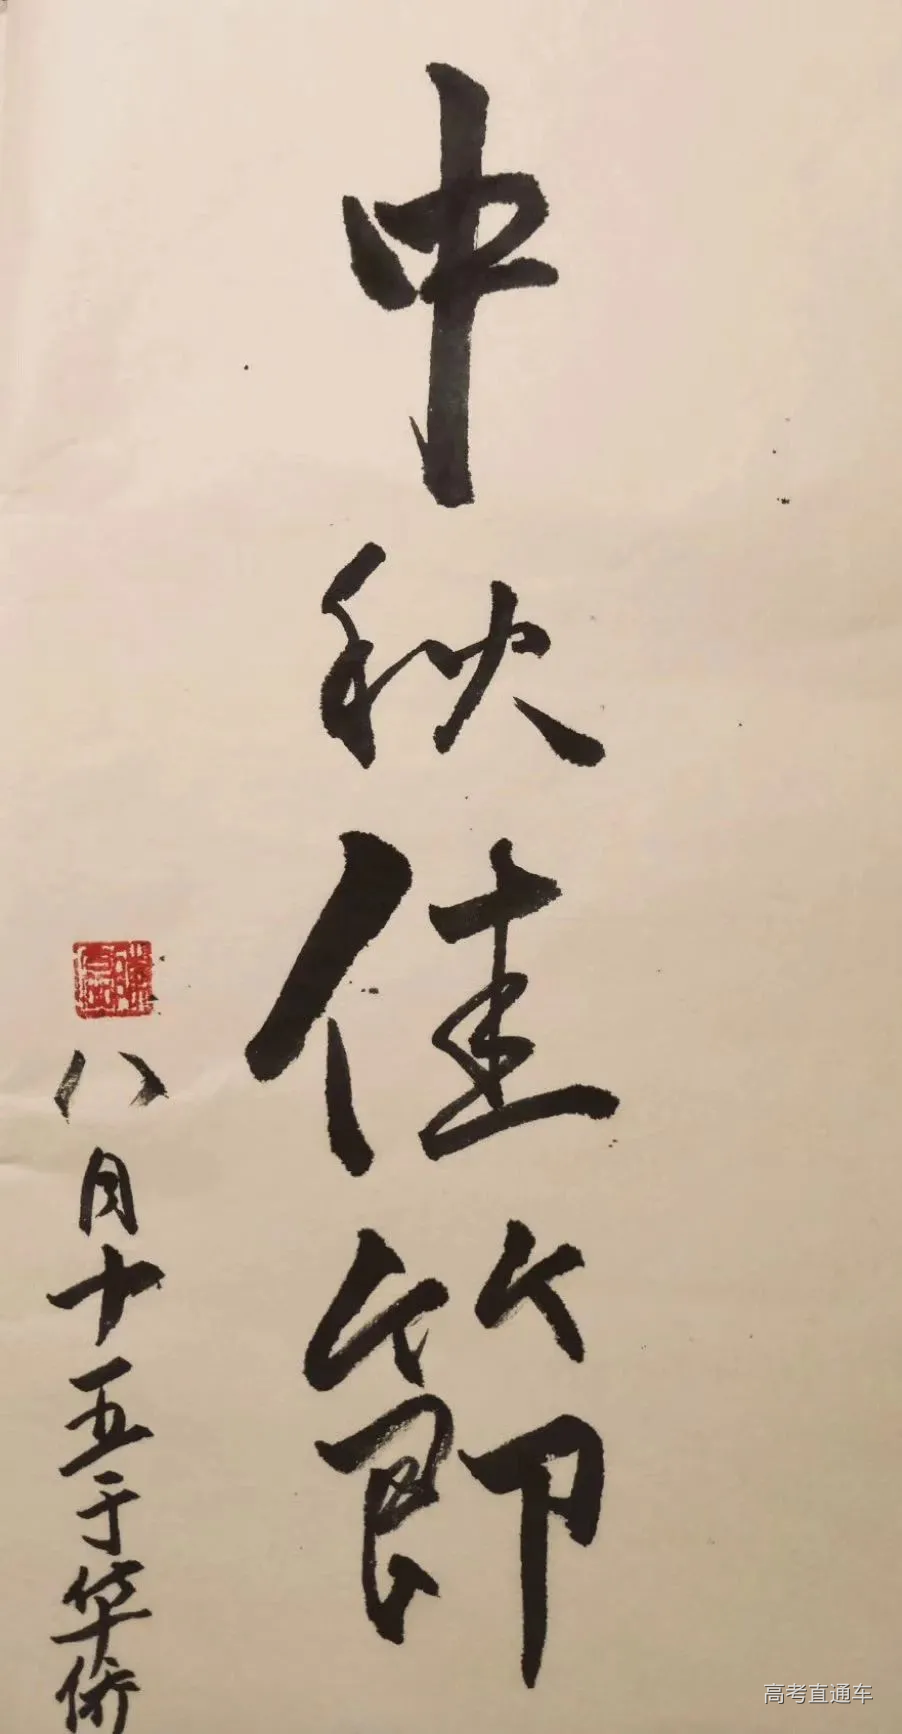 中秋佳節
八月十五于华侨
高考直通车